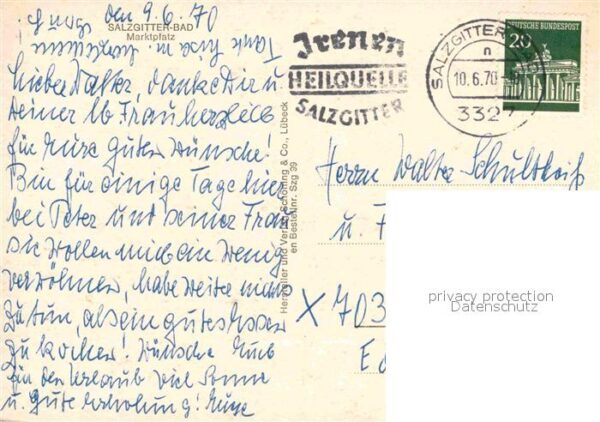 den 9.6.70
SALZGITTER-BAD
Marktplatz
Lieber Walter, danke Dir u.
Deiner lb Frau herzlich
für Eure guten Wünsche!
Bin für einige Tage hier
bei Peter und seiner Frau
sie wollen mich ein wenig
verwöhnen, habe weiter nichts
zu tun, als ein gutes Essen
zu kochen! Wünsche Euch
für den Urlaub viel Sonne
u. gute Erholung! Eure
Tante
Hersteller und Verlag Schöning & Co., Lübeck
Bestellnr. Szg 39
Irenen
HEILQUELLE
SALZGITTER
SALZGITTER
n
10.6.70
3327
DEUTSCHE BUNDESPOST
20
Herrn Walter Schultheiß
u.
X 703
privacy protection
Datenschutz